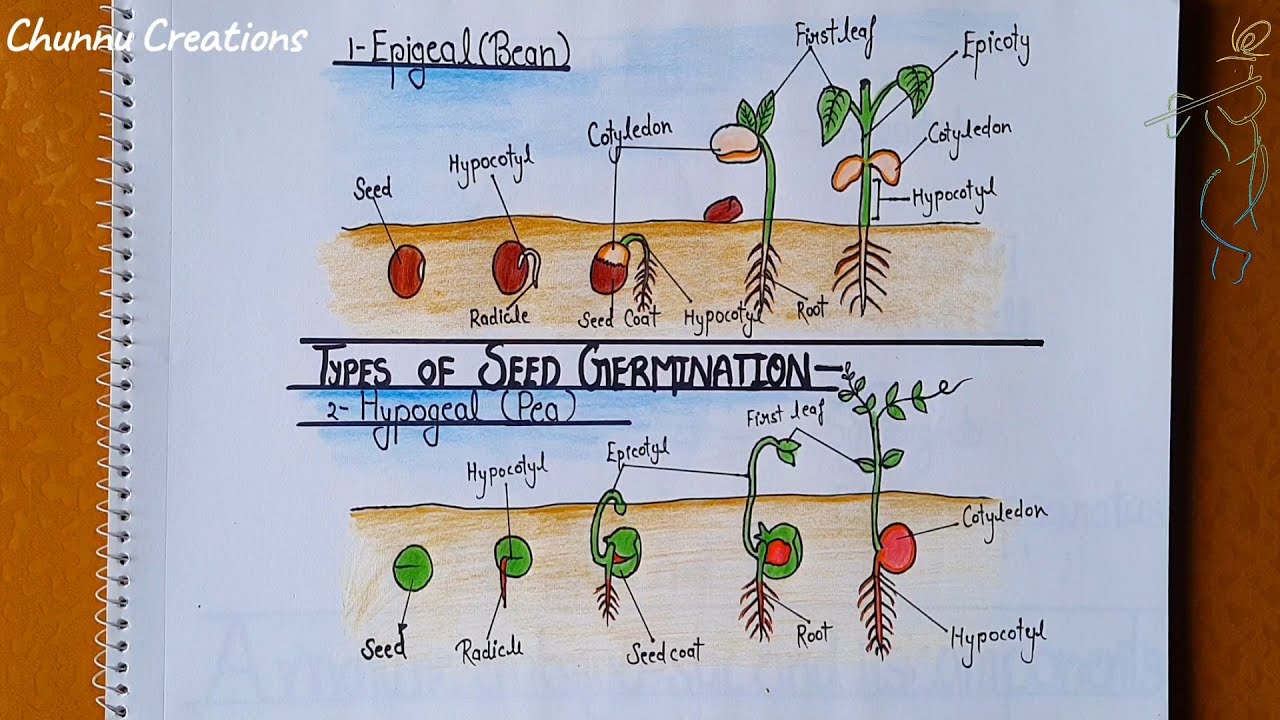 Chunnu Creations
1- Epigeal (Bean)
First leaf
Epicoty
Cotyledon
Cotyledon
Hypocotyl
Seed
Hypocotyl
Radicle
Seed Coat
Hypocotyl
Root
TYPES OF SEED GERMINATION-
2- Hypogeal (Pea)
First leaf
Epicotyl
Hypocotyl
Cotyledon
Seed
Radicle
Seed coat
Root
Hypocotyl